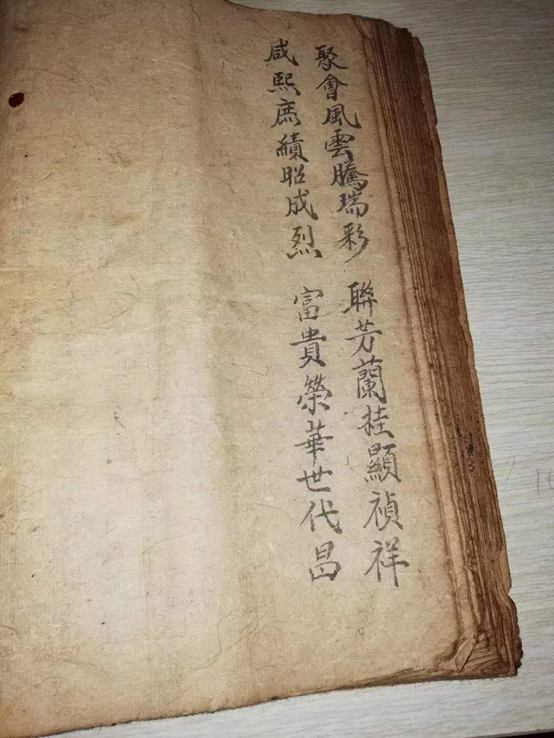 聚會風雲騰瑞彩 聯芳蘭桂顯禎祥
咸熙庶績昭成烈 富貴榮華世代昌